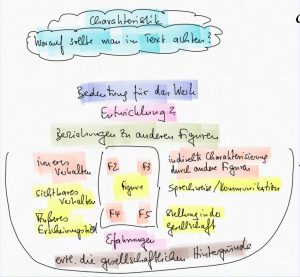 Charakteristik
Worauf sollte man im Text achten?
Bedeutung für das Werk
Entwicklung?
Beziehungen zu anderen Figuren
inneres Verhalten
F2 F3
indirekte Charakterisierung durch andere Figuren
sichtbares Verhalten
Figur
Sprechweise/Kommunikation
Äußeres Erscheinungsbild
F4 F5
Stellung in der Gesellschaft
Erfahrungen
die gesellschaftlichen Hintergründe